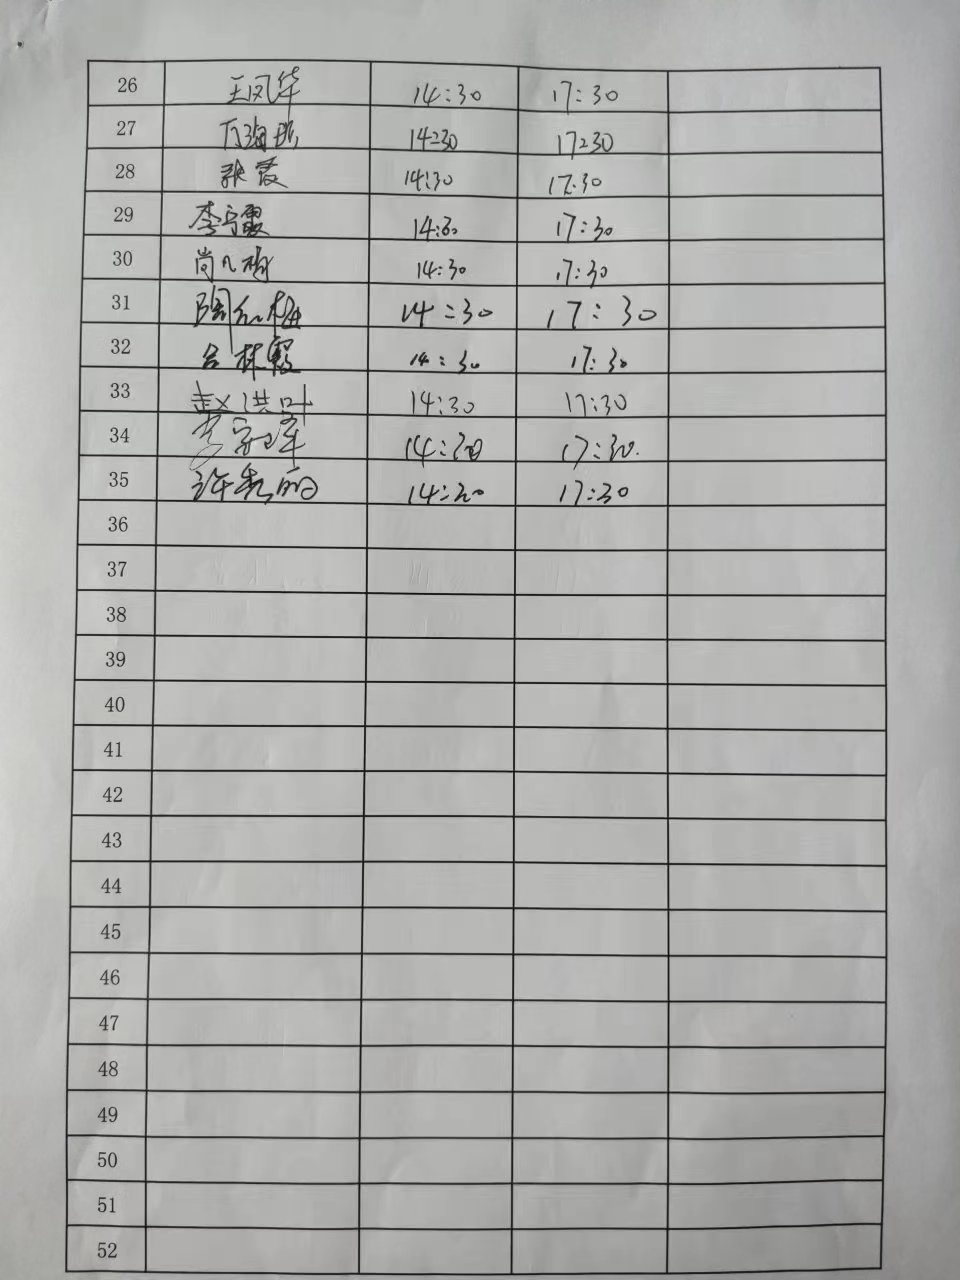 26 王凤华 14:30 17:30
27 14:30 17:30
28 张霞 14:30 17:30
29 李宁霞 14:30 17:30
30 尚凡梅 14:30 17:30
31 陶红梅 14:30 17:30
32 台林霞 14:30 17:30
33 赵洪叶 14:30 17:30
34 李 军 14:30 17:30.
35 许秀丽 14:30 17:30
36
37
38
39
40
41
42
43
44
45
46
47
48
49
50
51
52